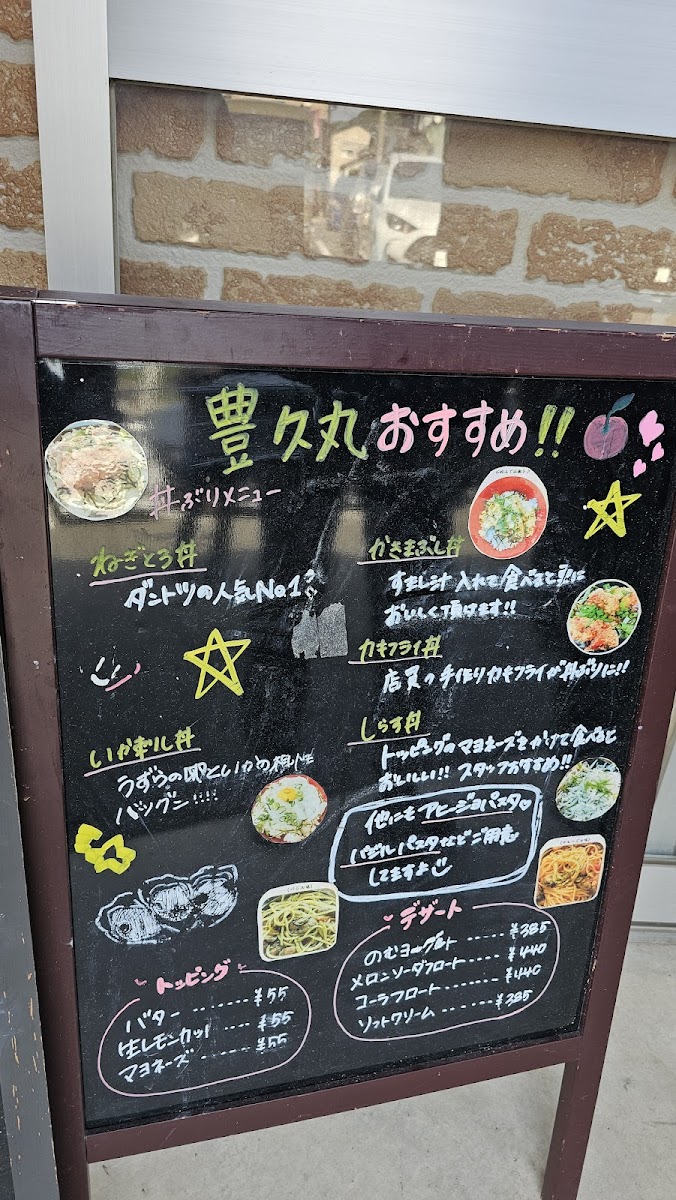 豊久丸 おすすめ!!
丼ぶりメニュー
ねぎとろ丼
ダントツの人気No1
いか刺し丼
うずらの卵といかの相性
バツグン!!!!
かきまぶし丼
すまし汁 入れて食べると更に
おいしく頂けます!!
カキフライ丼
店員の手作りカキフライが丼ぶりに!!
しらす丼
トッピングのマヨネーズをかけて食べると
おいしい!! スタッフおすすめ!!
他にも アヒージョパスタ
バジルパスタなどご用意
してますよ
トッピング
バター ------- ¥55
生レモンカット ---- ¥55
マヨネーズ ------ ¥55
デザート
のむヨーグルト ----- ¥385
メロンソーダフロート ---- ¥440
コーラフロート ------ ¥440
ソフトクリーム ------- ¥385